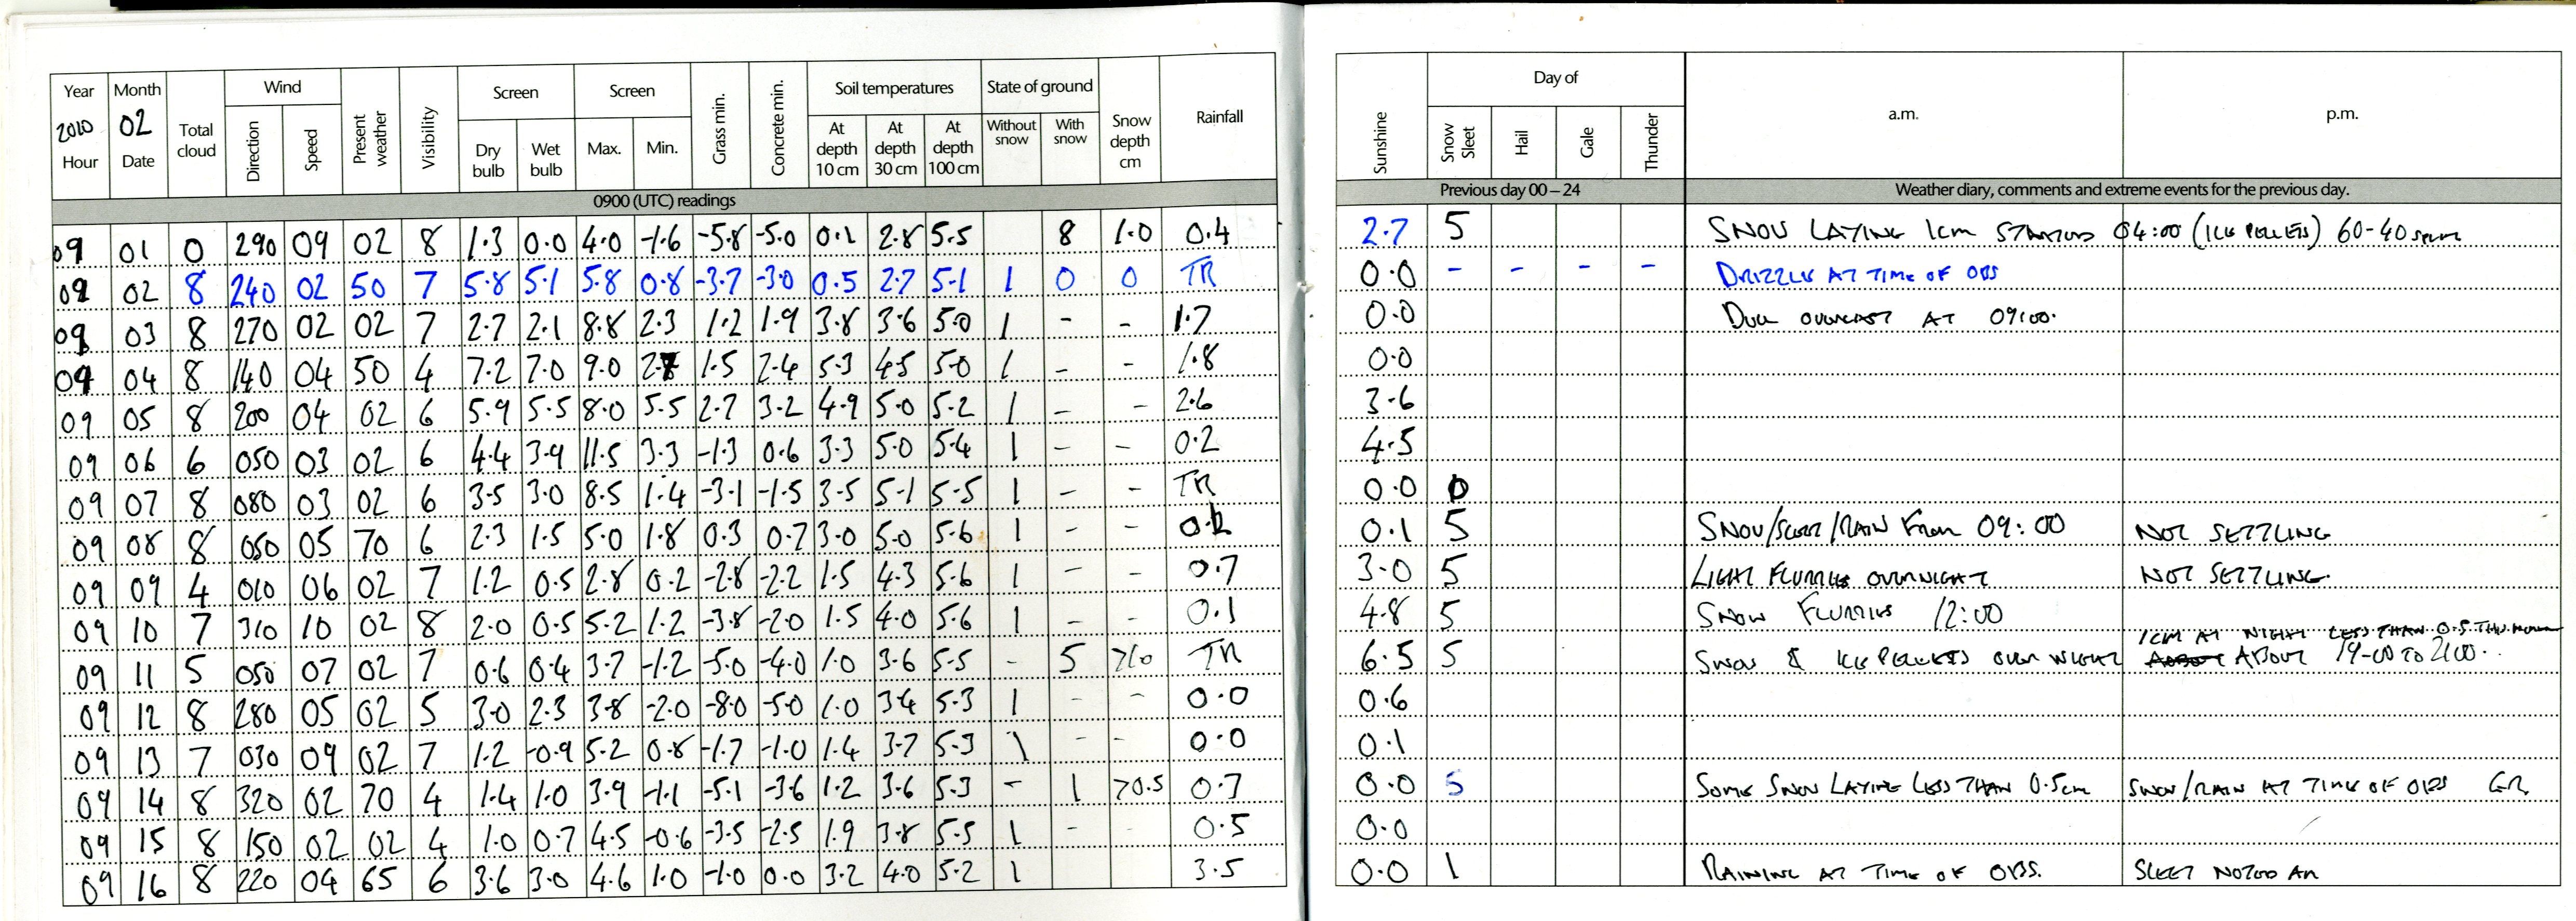 Year Month Total cloud Wind Present weather Visibility Screen Screen Grass min. Concrete min. Soil temperatures State of ground Snow depth cm Rainfall Sunshine Day of a.m. p.m.
2010 02
Hour Date Direction Speed Dry bulb Wet bulb Max. Min. At depth 10 cm At depth 30 cm At depth 100 cm Without snow With snow Snow Sleet Hail Gale Thunder
0900 (UTC) readings Previous day 00 – 24 Weather diary, comments and extreme events for the previous day.
09 01 0 290 09 02 8 1.3 0.0 4.0 -1.6 -5.8 -5.0 0.1 2.8 5.5 8 1.0 0.4 2.7 5 SNOW LAYING 1cm STARTED 04:00 (ICE PELLETS) 60-40
09 02 8 240 02 50 7 5.8 5.1 5.8 0.8 -3.7 -3.0 0.5 2.7 5.1 1 0 0 TR 0.0 - - - - DRIZZLE AT TIME OF OBS
09 03 8 270 02 02 7 2.7 2.1 8.8 2.3 1.2 1.9 3.8 3.6 5.0 1 - - 1.7 0.0 DULL OVERCAST AT 09:00.
09 04 8 140 04 50 4 7.2 7.0 9.0 1.5 2.4 5.3 4.5 5.0 1 - - 1.8 0.0
09 05 8 200 04 02 6 5.9 5.5 8.0 5.5 2.7 3.2 4.9 5.0 5.2 1 - - 2.6 3.6
09 06 6 050 03 02 6 4.4 3.9 11.5 3.3 -1.3 0.6 3.3 5.0 5.4 1 - - 0.2 4.5
09 07 8 080 03 02 6 3.5 3.0 8.5 1.4 -3.1 -1.5 3.5 5.1 5.5 1 - - TR 0.0 0
09 08 8 050 05 70 6 2.3 1.5 5.0 1.8 0.3 0.7 3.0 5.0 5.6 1 - - 0.1 5 SNOW/SLEET/RAIN FROM 09:00 NOT SETTLING
09 09 4 010 06 02 7 1.2 0.5 2.8 0.2 -2.8 -2.2 1.5 4.3 5.6 1 - - 0.7 3.0 5 LIGHT FLURRIES OVERNIGHT NOT SETTLING.
09 10 7 310 10 02 8 2.0 0.5 5.2 1.2 -3.8 -2.0 1.5 4.0 5.6 1 - - 0.1 4.8 5 SNOW FLURRIES 12:00
1CM AT NIGHT LESS THAN 0.5
09 11 5 050 07 02 7 0.6 0.4 3.7 -1.2 -5.0 -4.0 1.0 3.6 5.5 - 5 TR 6.5 5 SNOW & ICE PELLETS OVER NIGHT ABOUT 19-00 TO 2100..
09 12 8 280 05 02 5 3.0 2.3 3.8 -2.0 -8.0 -5.0 1.0 3.4 5.3 1 - - 0.0 0.6
09 13 7 030 09 02 7 1.2 -0.9 5.2 0.8 -1.7 -1.0 1.4 3.7 5.3 1 - - 0.0 0.1
09 14 8 320 02 70 4 1.4 1.0 3.9 -1.1 -5.1 -3.6 1.2 3.6 5.3 - 1 >0.5 0.7 0.0 5 SOME SNOW LAYING LESS THAN 0.5cm SNOW/RAIN AT TIME OF OBS GR.
09 15 8 150 02 02 4 1.0 0.7 4.5 -0.6 -3.5 -2.5 1.9 3.8 5.5 1 - - 0.5 0.0
09 16 8 220 04 65 6 3.6 3.0 4.6 1.0 -1.0 0.0 3.2 4.0 5.2 1 3.5 0.0 1 RAINING AT TIME OF OBS. SLEET NOTED AM